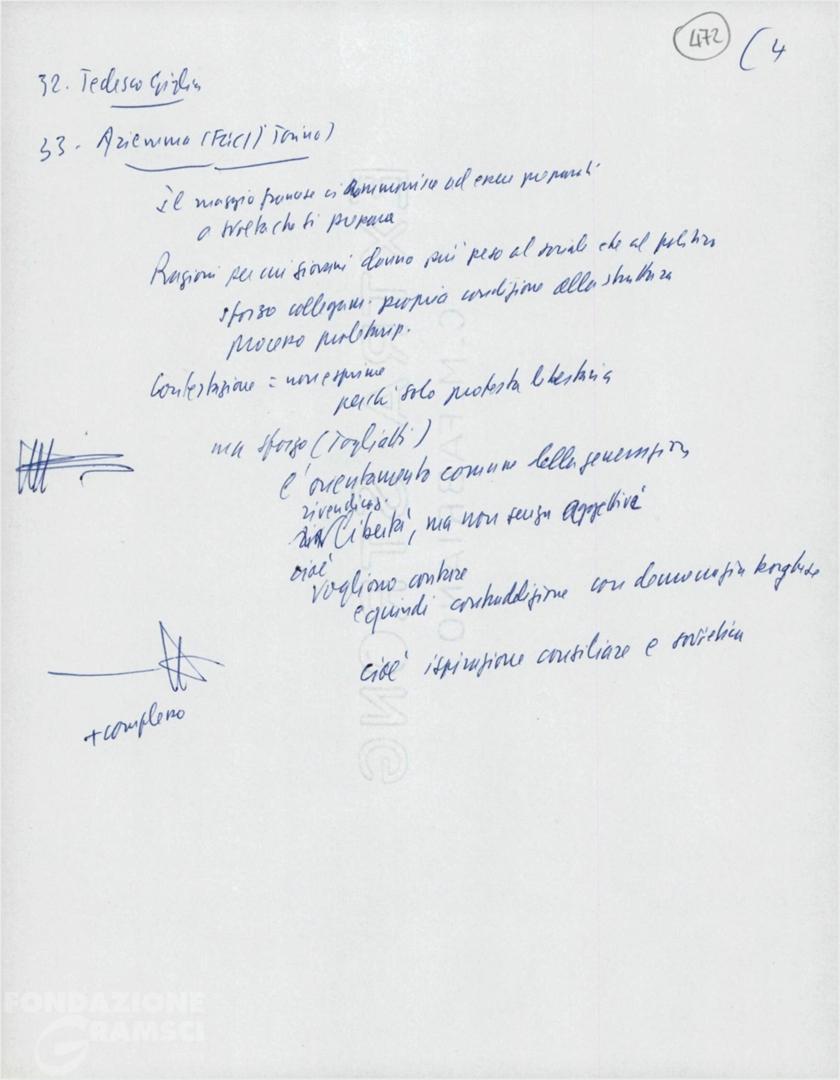 472
( 4
32. Tedesco Giglia
33. (FGCI Torino)
Il maggio francese ci ad essere preparati
a svolta che si prepara
Ragioni per cui giovani danno più peso al sociale che al politico
sforzo collegare propria condizione alla struttura
processo
Contestazione = non esprime
perché solo protesta libertaria
ma sforzo (Togliatti)
è orientamento comune della generazione
rivendicaz.
libertà, ma non senza
cioè
vogliono contare
e quindi contraddizione con democrazia borghese
cioè ispirazione consiliare e sovietica
+ complesso
EXTRA STRONG
C.M. FABRIANO
FONDAZIONE
GRAMSCI